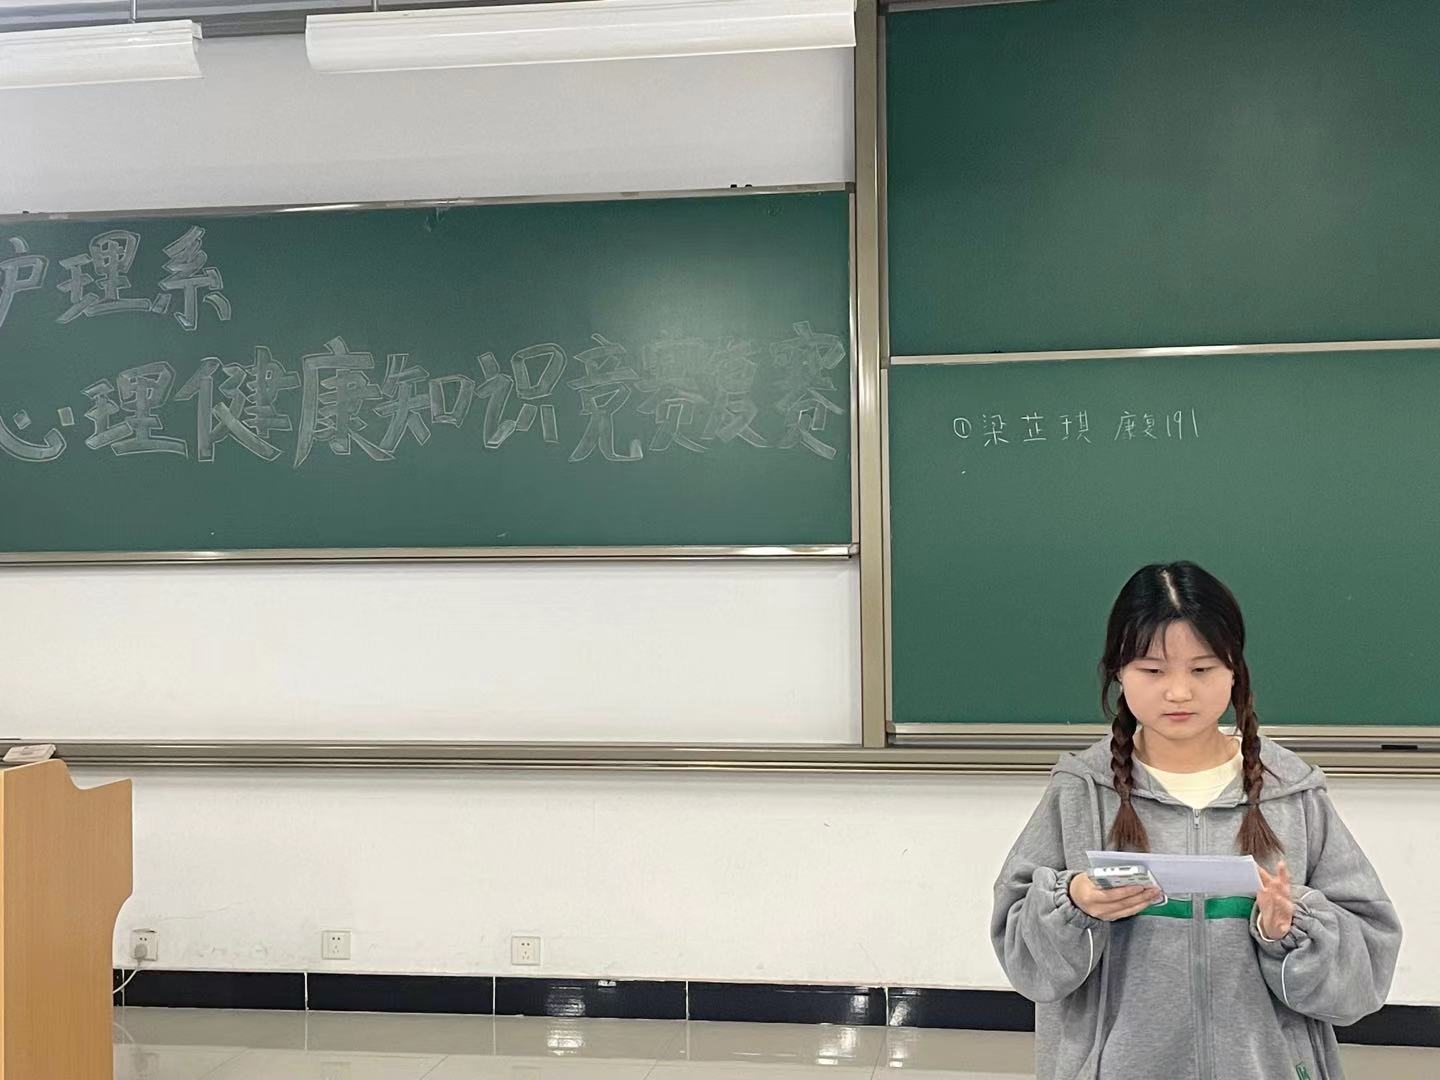 护理系
心理健康知识竞赛复赛
① 梁芷琪 康复191